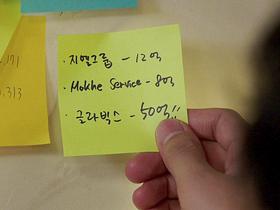 .171
.313
· 지엘그룹 - 12억
· Mokhe Service - 8억
· 글라빅스 - 50억!!